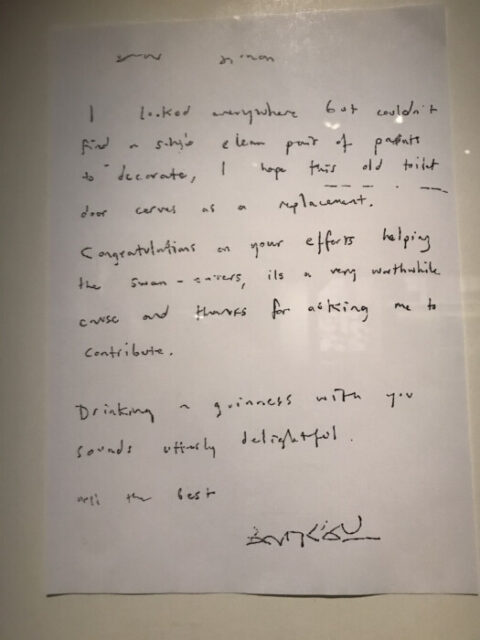 Simon
I looked everywhere but couldn't
find a single clean pair of pants
to decorate, I hope this old toilet
door serves as a replacement.
Congratulations on your efforts helping
the swan-savers, its a very worthwhile
cause and thanks for asking me to
contribute.
Drinking a guinness with you
sounds utterly delightful.
all the best
BANKSY